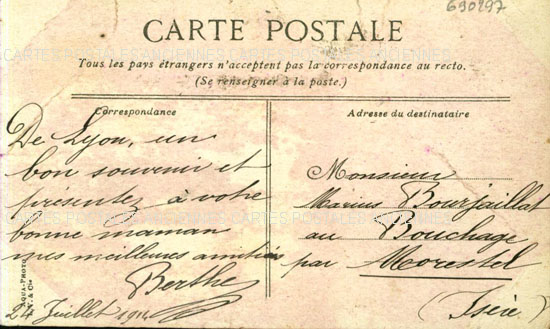 690297
CARTE POSTALE
Tous les pays étrangers n'acceptent pas la correspondance au recto.
(Se renseigner à la poste.)
Correspondance
De Lyon, un
bon souvenir et
présentez à votre
bonne maman
mes meilleures amitiés
Berthe
24 Juillet 1914
Adresse du destinataire
Monsieur
Marius Bourjaillat
au Bouchage
par Morestel
(Isère)
AQUA-PHOTO
L.V. & Cie
CARTES POSTALES ANCIENNES CARTES POSTALES ANCIENNES